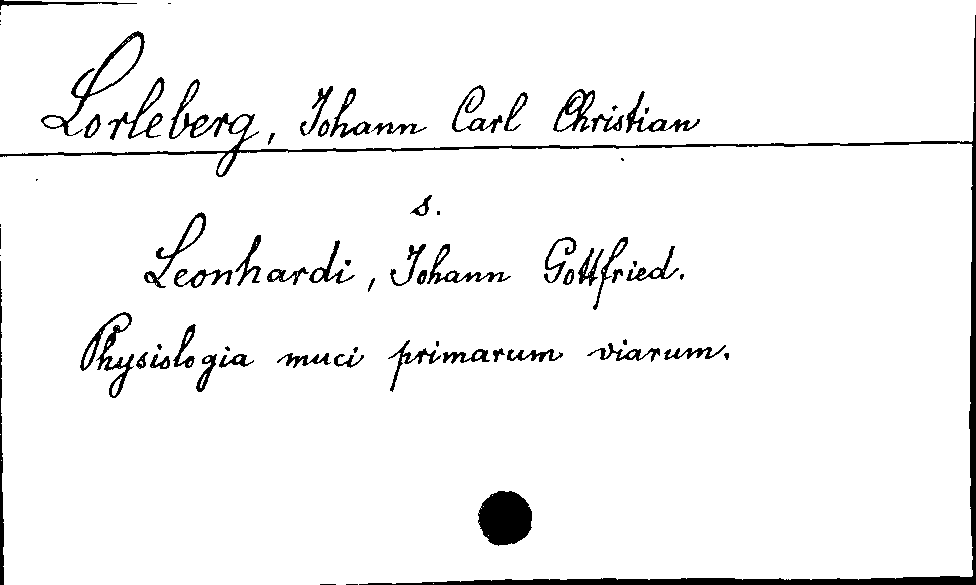 Lorleberg, Johann Carl Christian
s.
Leonhardi, Johann Gottfried.
Physiologia muci primarum viarum.